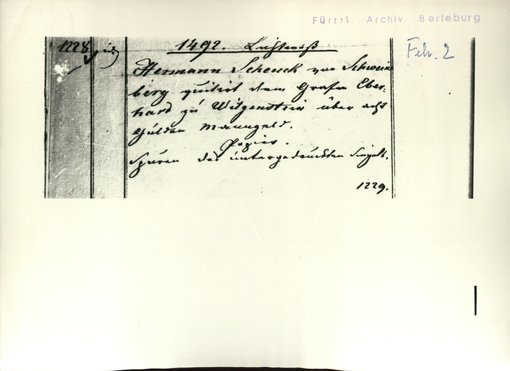 Fürstl. Archiv Berleburg
Febr. 2
1228
1492. Lichtmeß
Hermann Schenck von Schwein
berg quitirt dem Grafen Eber
hard zu Witgenstein über acht
Gulden Manngeld.
Papier.
Spuren des untergedruckten Siegels.
1229.